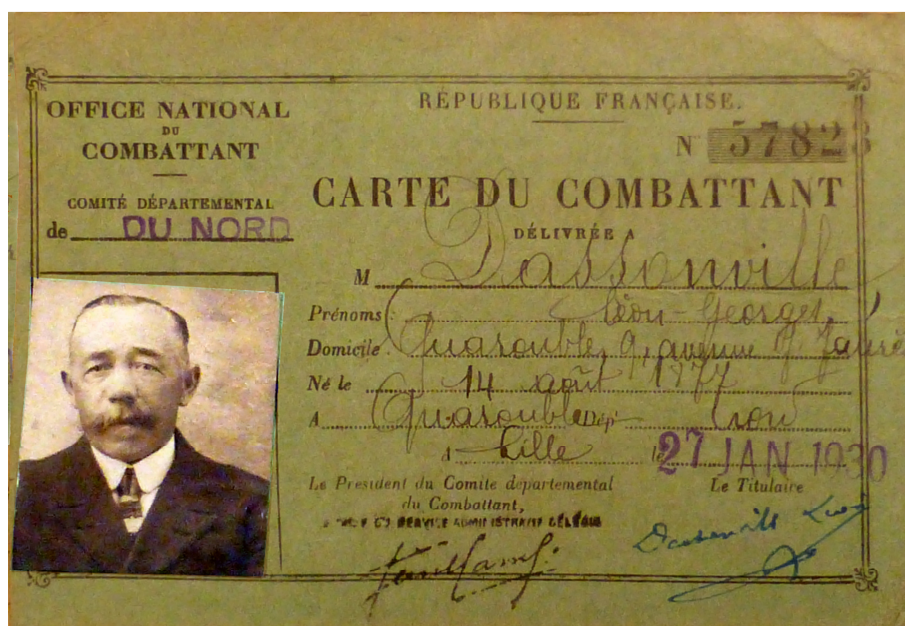 OFFICE NATIONAL
DU
COMBATTANT
COMITÉ DÉPARTEMENTAL
de DU NORD
RÉPUBLIQUE FRANÇAISE.
N° 57823
CARTE DU COMBATTANT
DÉLIVRÉE A
M Dassonville
Prénoms : Léon-Georges
Domicile : Quarouble, 9, avenue J. Jaurès
Né le 14 août 1877
A Quarouble Dép^t Nord
A Lille le 27 JAN 1930
Le Président du Comité départemental
du Combattant,
SERVICE ADMINISTRATIF DÉLÉGUÉ
Le Titulaire
Dassonville Léon